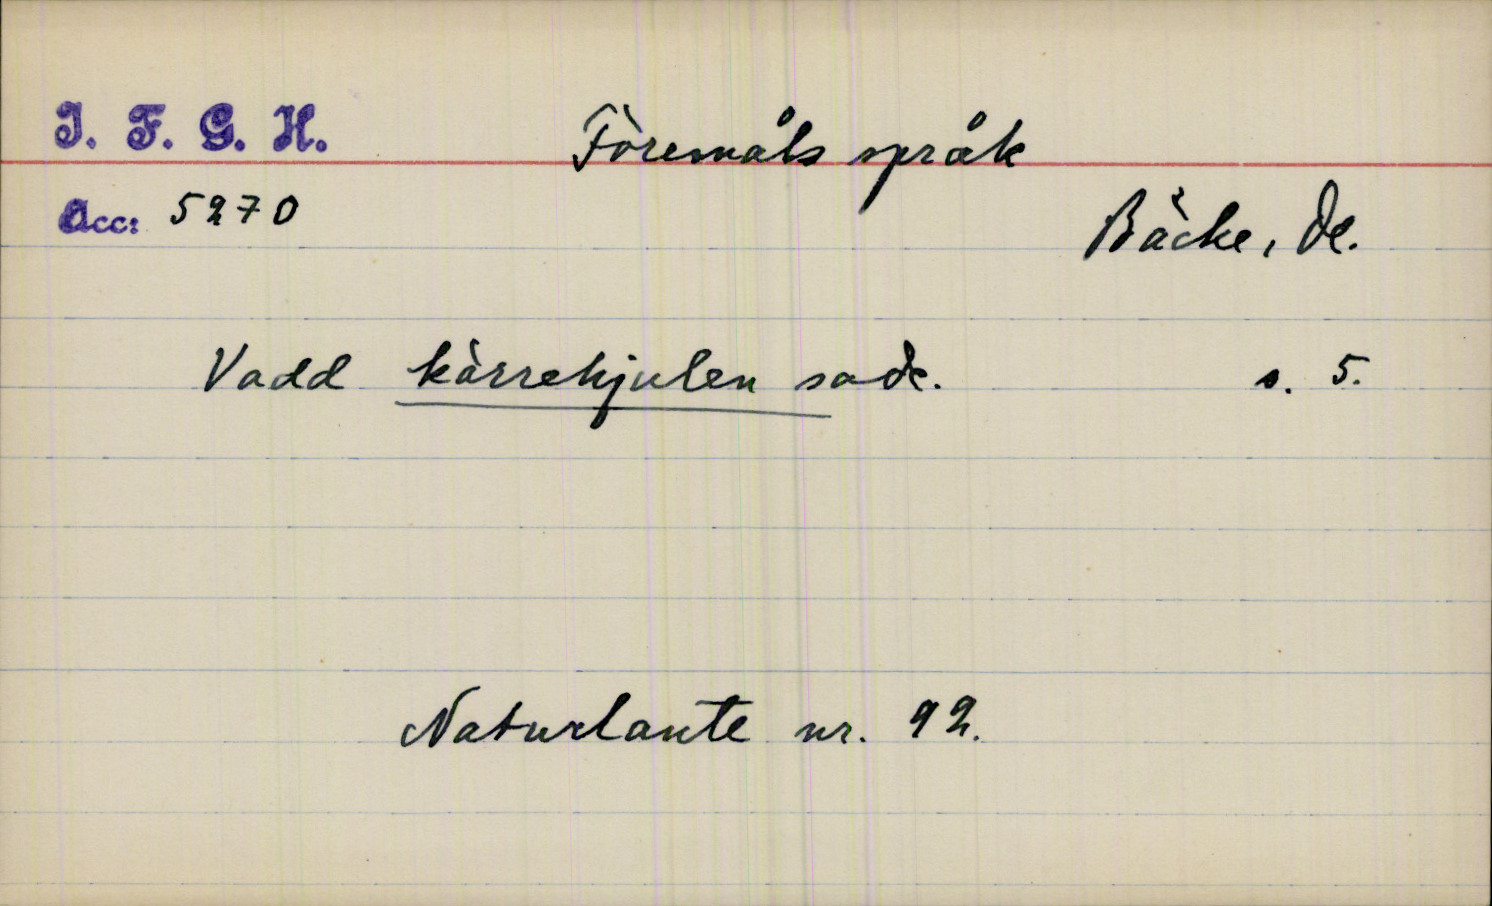 I. F. G. H.
Föremåls språk
Acc: 5270
Bäcke, De.
Vadd kärrehjulen sade.
s. 5.
Naturlante nr. 92.